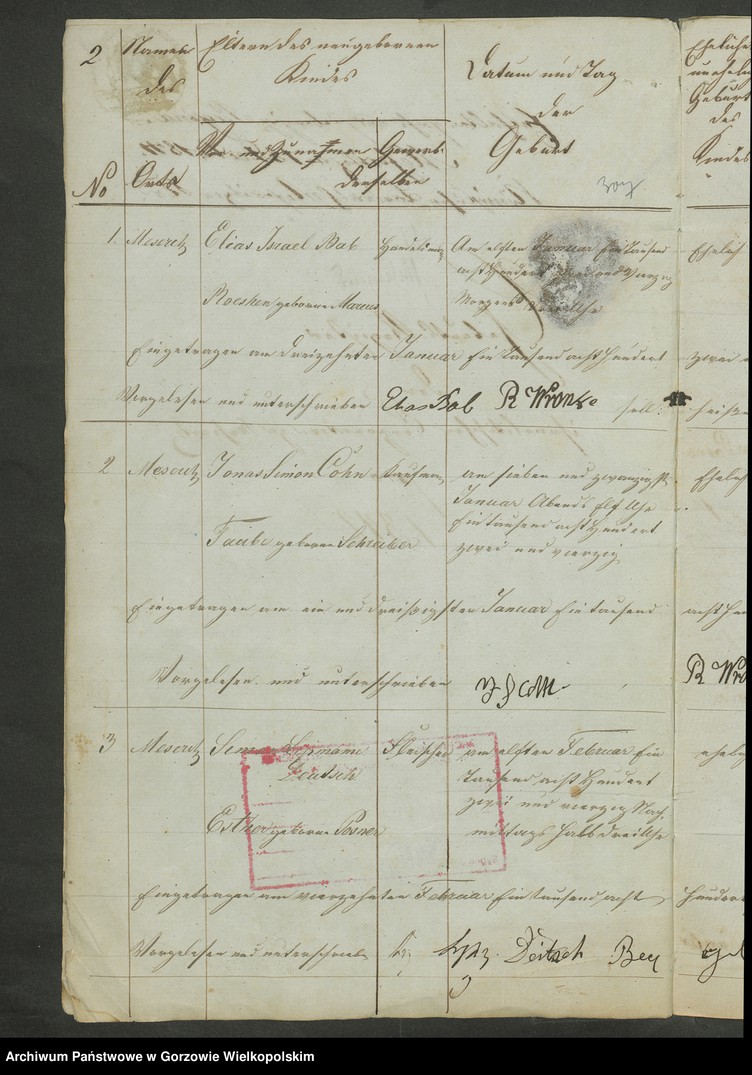 2
Namen des Orts
Eltern des neugebornen Kindes
Vor und Zunahmen
Gewerb
derselben
Datum und Tag der Geburt
Eheliche
Geburt
des
Kindes
No
1. Meseritz Elias Israel Bab Handelsm Am elften Januar Ein Tausend Ehelich
acht Hundert und vierzig
Roeschen geborne Marcus Morgens Uhr
Eingetragen am dreizehnten Januar Ein Tausend acht Hundert zwei
Vorgelesen und unterschrieben Elias Bab R Wronke
2 Meseritz Jonas Simon Cohn Kaufm am sieben und zwanzigst Ehelich
Januar Abends Elf Uhr
Ein tausend acht Hundert
Taube geborne Schreiber zwei und vierzig
Eingetragen am ein und dreißigsten Januar Ein tausend acht
Vorgelesen und unterschrieben R Wro
3 Meseritz Simon Lippmann Fleischer am elften Februar Ein ehelig
Deutsch Tausend acht Hundert
zwei und vierzig Nach
Esther geborne Posner mittags halb drei Uhr
Eingetragen am vierzehnten Februar Ein tausend acht Hundert
Vorgelesen und unterschrieben Deitsch
Archiwum Państwowe w Gorzowie Wielkopolskim